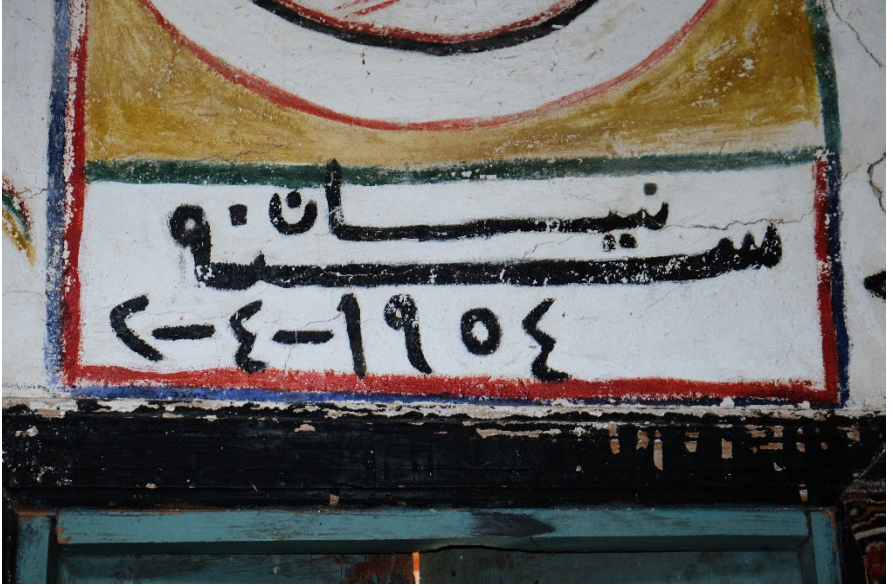 نيسان
سنه
٢-٤-١٩٥٤